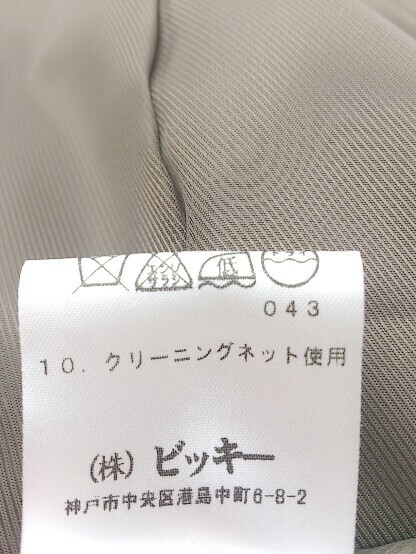 エンソ
サラシ 低
043
10. クリーニングネット使用
(株) ビッキー
神戸市中央区港島中町6-8-2